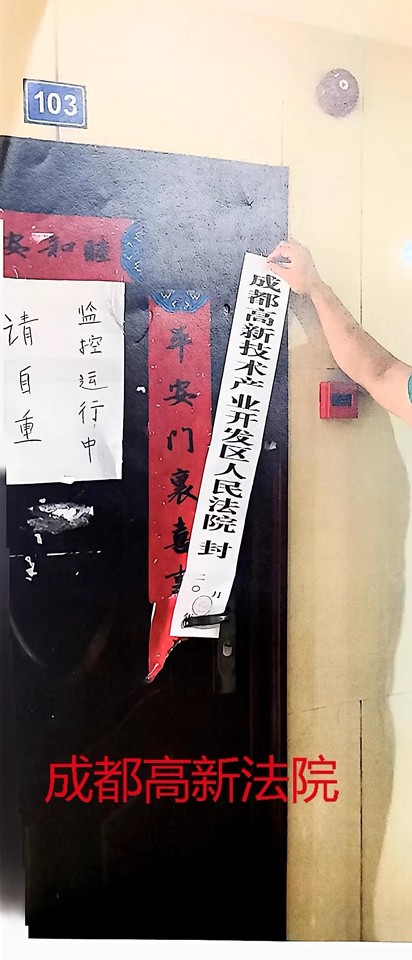 103
安和睦
监控运行中
请自重
平安门裏喜事
成都高新技术产业开发区人民法院 封
二〇 月
成都高新法院